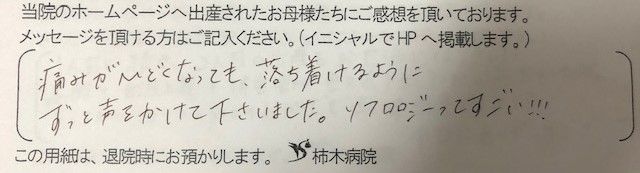 当院のホームページへ出産されたお母様たちにご感想を頂いております。
メッセージを頂ける方はご記入ください。(イニシャルでHPへ掲載します。)
痛みがひどくなっても、落ち着けるように
ずっと声をかけて下さいました。ソフロロジーってすごい!!!
この用紙は、退院時にお預かりします。 柿木病院